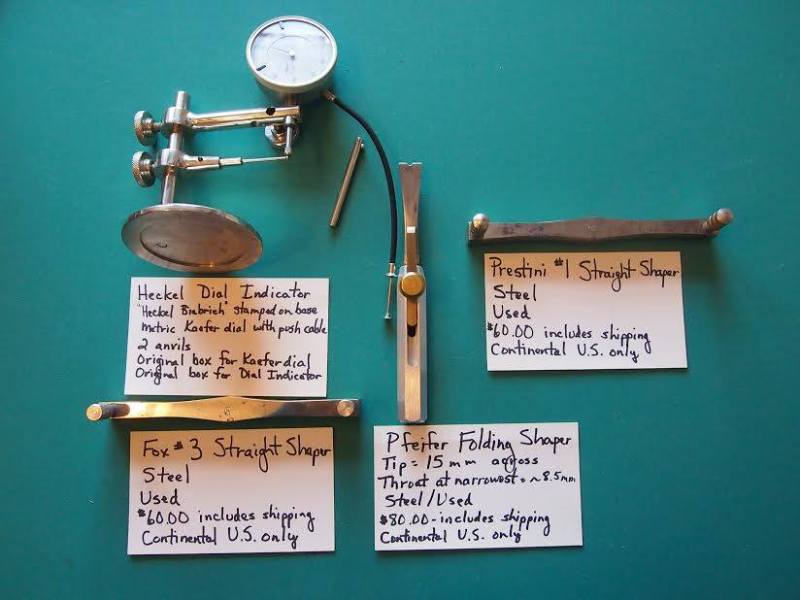 Heckel Dial Indicator
"Heckel Biebrich" stamped on base
metric Kaefer dial with push cable
2 anvils
Original box for Kaefer dial
Original box for Dial Indicator
Prestini #1 Straight Shaper
Steel
Used
$60.00 includes shipping
Continental U.S. only
Fox #3 Straight Shaper
Steel
Used
$60.00 includes shipping
Continental U.S. only
Pfeifer Folding Shaper
Tip = 15 mm across
Throat at narrowest = ~8.5mm
Steel/Used
$80.00 - includes shipping
Continental U.S. only